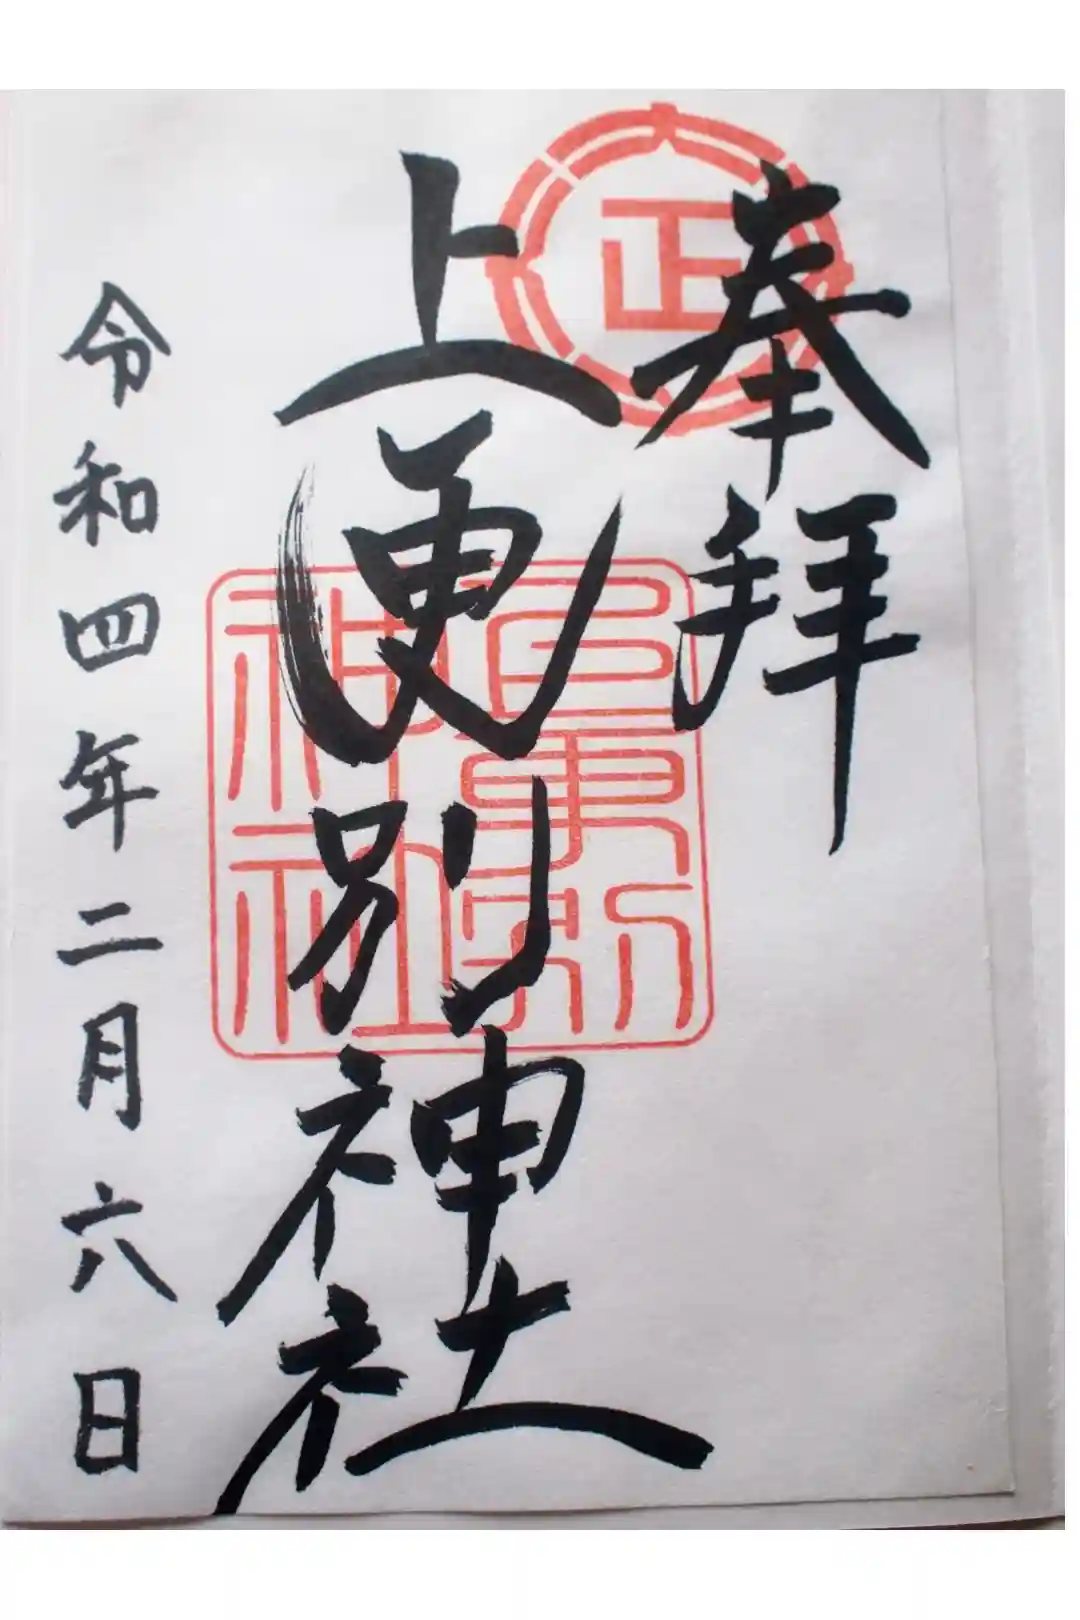 奉拝
正
上更別神社
上更別
神社
令和四年二月六日